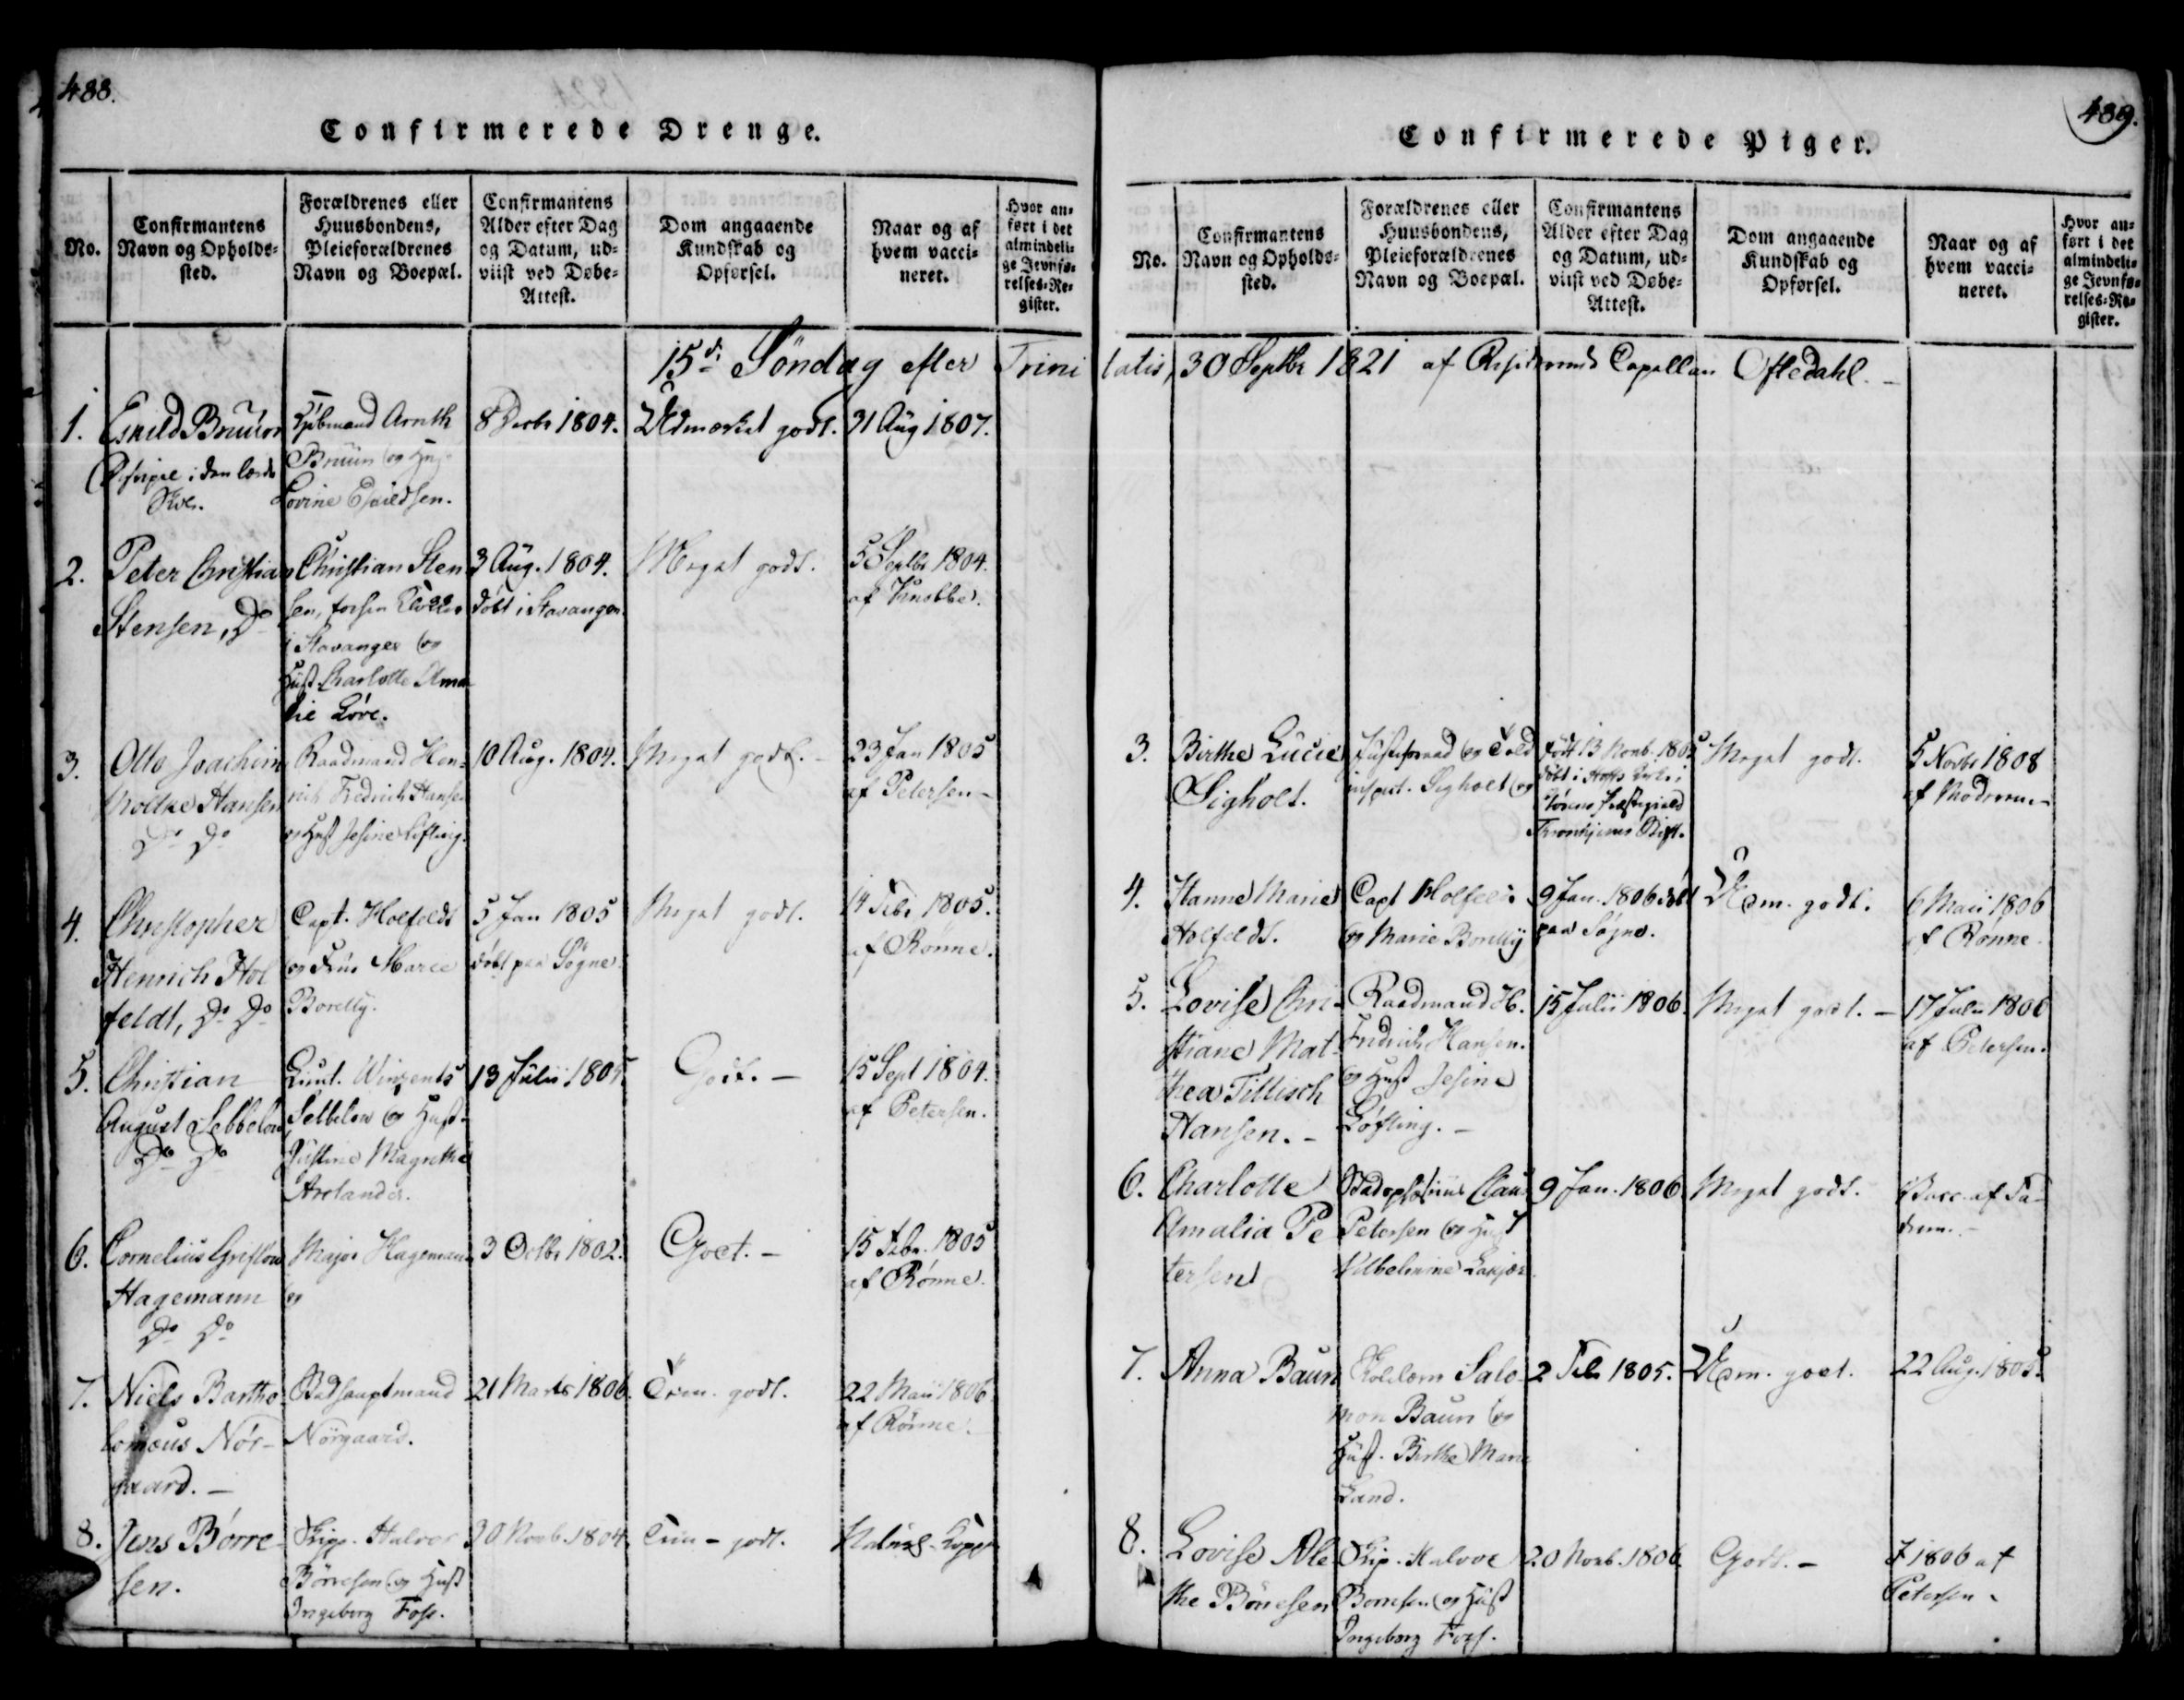 488.
Confirmerede Drenge.
No.
Confirmantens
Navn og Opholds-
sted.
Forældrenes eller
Huusbondens,
Pleieforældrenes
Navn og Boepæl.
Confirmantens
Alder efter Dag
og Datum, ud-
viist ved Døbe-
Attest.
Dom angaaende
Kundskab og
Opførsel.
Naar og af
hvem vacci-
neret.
Hvor an-
ført i det
almindeli-
ge Jevnfø-
relses-Re-
gister.
15de Söndag efter Trini
1.
Eskild Bruun
i den lærde
Skole.
Kjøbmand Arnth
Bruun og
Lovine Eskildsen.
8 Decbr 1804.
Udmærket godt.
31 Aug 1807.
2.
Peter Christian
Stensen, Do
Christian Sten
sen, forhen
i Stavanger og
Hust Charlotte Ama
lie Love.
3 Aug. 1804.
döbt i Stavanger.
Meget godt.
5 Septbr 1804.
af
3.
Otto Joachim
Moltke Hansen
Do Do
Raadmand Hen-
rich Fredrich Hansen
og Hust Jesine Löfling.
10 Aug. 1804.
Meget godt.-
23 Jan 1805
af Petersen-
4.
Christopher
Henrich Hol
feldt, Do Do
Capt. Holfeldt
og Frue Maree
Borelly.
5 Jan 1805
döbt paa Sögne.
Meget godt.
14 Febr 1805.
af Rönne.
5.
Christian
August Sebbelow
Do Do
Lieut. Winzents
Sebbelow og Hust.
Justine Magrethe
Arolander.
13 Julii 1805.
Godt.-
15 Sept 1804.
af Petersen.
6.
Cornelius
Hagemann
Do Do
Major Hagemann
og
3 Octbr 1802.
Godt.-
15 Febr. 1805
af Rönne.
7.
Niels Bartho
lomæus Nör-
gaard.-
Nörgaard.
21 Marts 1806.
godt.
22 Maii 1806
af Rönne.
8.
Jens Börre-
sen.
Skipp. Halvor
Börresen og Hust
Ingeborg Foss.
30 Novb. 1804
godt.
Naturl. Kopp
489.
Confirmerede Piger.
No.
Confirmantens
Navn og Opholds-
sted.
Forældrenes eller
Huusbondens,
Pleieforældrenes
Navn og Boepæl.
Confirmantens
Alder efter Dag
og Datum, ud-
viist ved Døbe-
Attest.
Dom angaaende
Kundskab og
Opførsel.
Naar og af
hvem vacci-
neret.
Hvor an-
ført i det
almindeli-
ge Jevnfø-
relses-Re-
gister.
tatis, 30 Septbr 1821 af Residerende Capellan Oftedahl.-
3.
Birthe Lucie
Sigholt.
Justitsraad og Told
inspect. Sigholt og
född 13 Novb. 1805
döbt i
Störens Præstegield
Tronhjems Stift.
Meget godt.
5 Novbr 1808
af Moderen.-
4.
Hanne Marie
Holfeldt.
Capt Holfeldt
og Marie Borelly
9 Jan. 1806 döbt
paa Sögne.
Udm. godt.
6 Maii 1806
af Rönne.
5.
Lovise Chri-
stiane Mat-
thea Tillisch
Hansen.-
Raadmand H.
Fredrich Hansen.
og Hust Jesine
Löfling.-
15 Julii 1806.
Meget godt.-
17 Julii 1806
af Petersen.
6.
Charlotte
Amalia Pe
tersen
Claus
Petersen og Hust
Vilhelmine
9 Jan. 1806
Meget godt.
Vacc. af Fa-
deren.-
7.
Anna Baun
Salo-
mon Baun og
Hust. Birthe Marie
Land.
2 Febr 1805.
Udm. godt.
22 Aug. 1805.
8.
Lovise Ale
the Börresen
Skip. Halvor
Borresen og Hust
Ingeborg Foss.
20 Novb. 1806.
Godt.-
1806 af
Petersen.